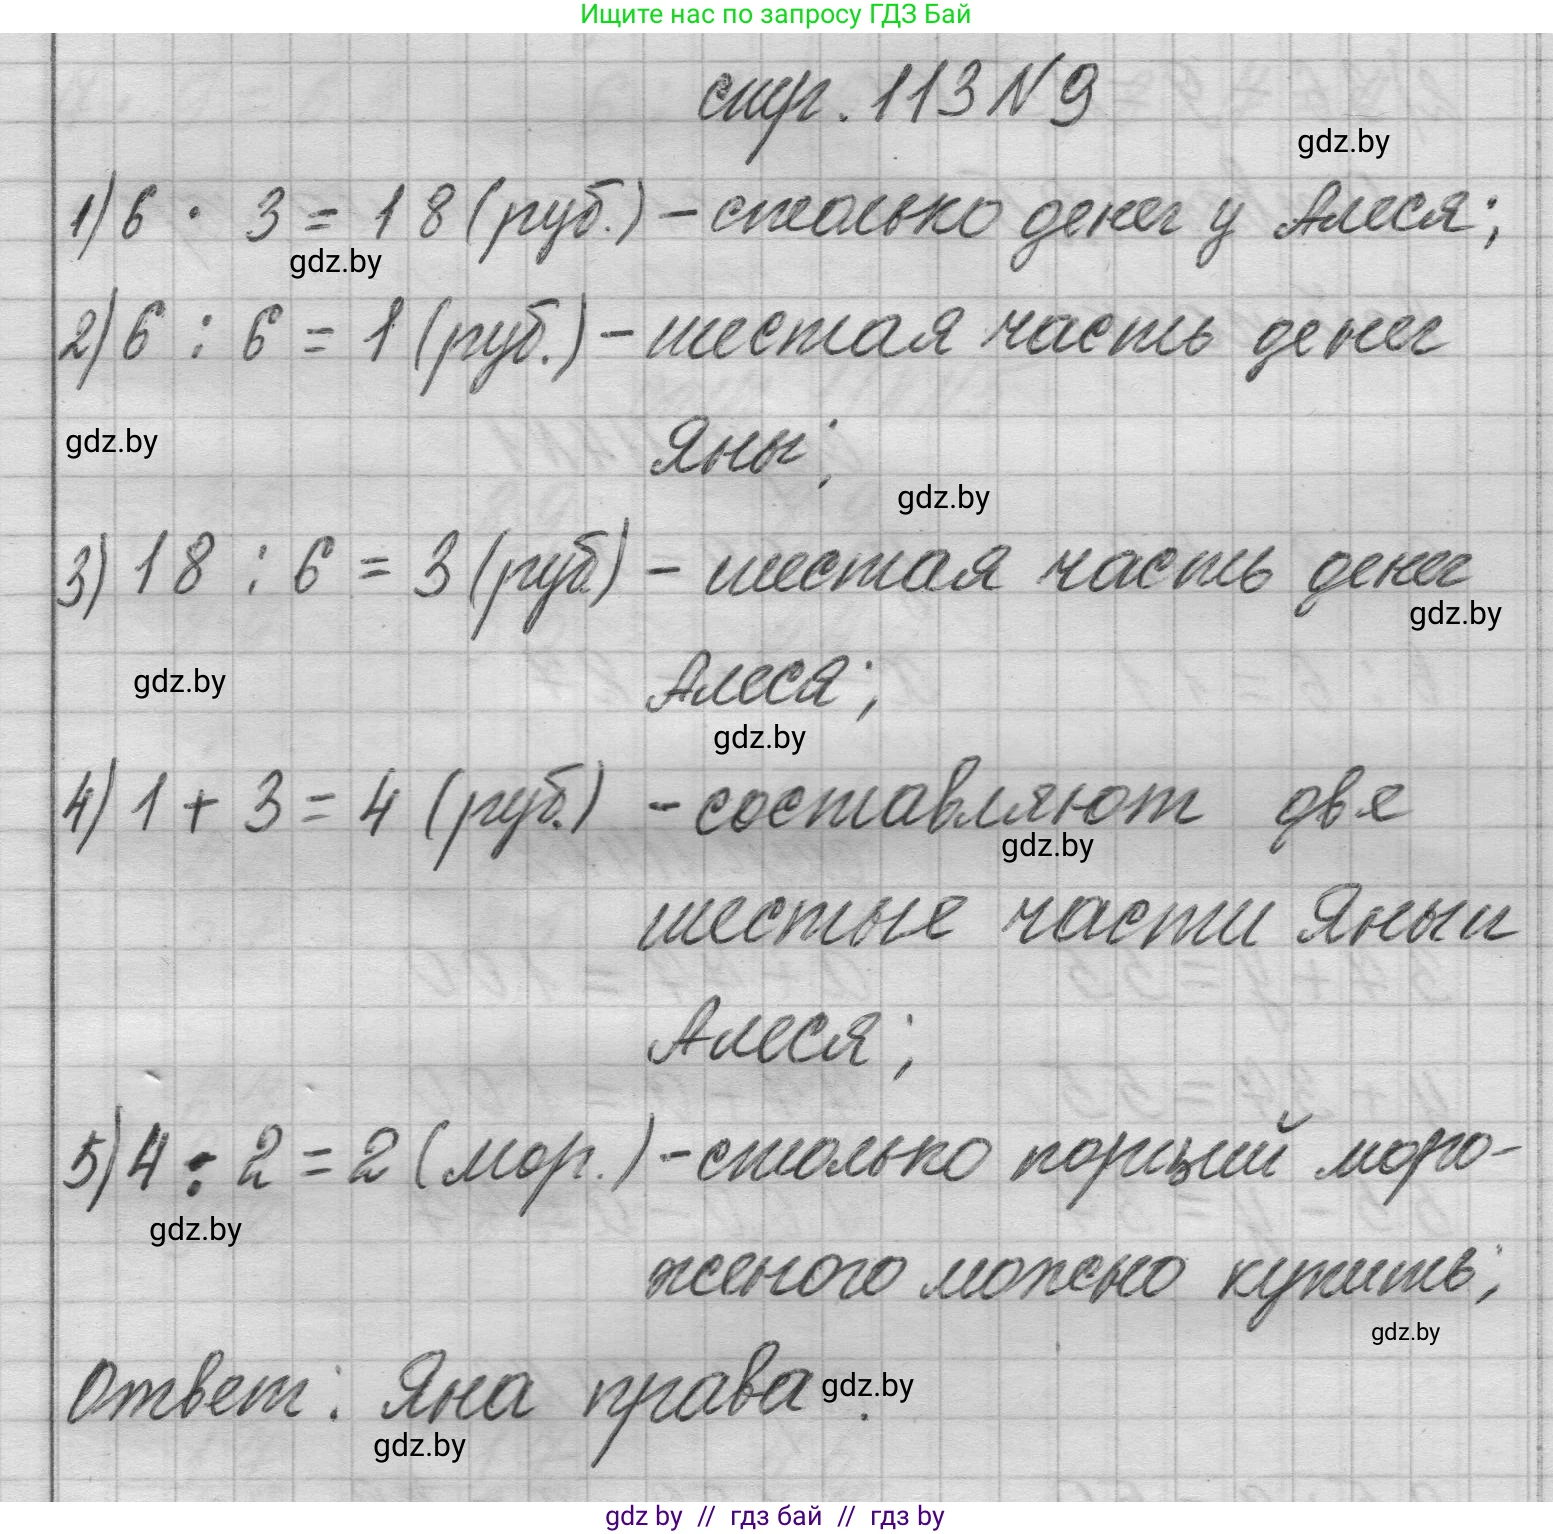 Ищите нас по запросу ГДЗ Бай
стр. 113 N 9
gdz.by
1) 6 · 3 = 18 (руб.) – столько денег у Алеся;
gdz.by
2) 6 : 6 = 1 (руб.) – шестая часть денег
gdz.by
Яны;
gdz.by
3) 18 : 6 = 3 (руб.) – шестая часть денег
gdz.by
gdz.by
Алеся;
gdz.by
4) 1 + 3 = 4 (руб.) – составляют две
gdz.by
шестые части Яны и
Алеся;
5) 4 : 2 = 2 (мор.) – столько порций моро-
gdz.by
женого можно купить;
gdz.by
Ответ: Яна права.
gdz.by
gdz.by
gdz by // гдз бай // гдз by